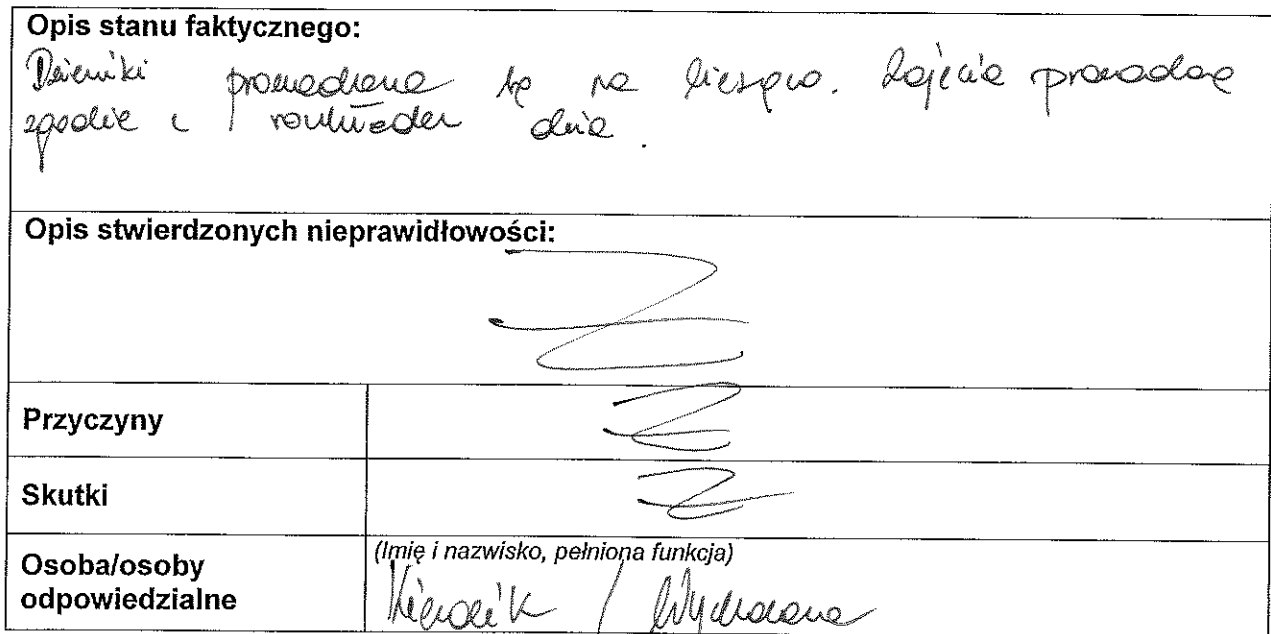 Opis stanu faktycznego:
Dzienniki prowadzone są na bieżąco. Zajęcia prowadzone
zgodnie z rozkładem dnia.
Opis stwierdzonych nieprawidłowości:
Przyczyny
Skutki
Osoba/osoby
odpowiedzialne
(Imię i nazwisko, pełniona funkcja)
Kierownik / Wychowawca